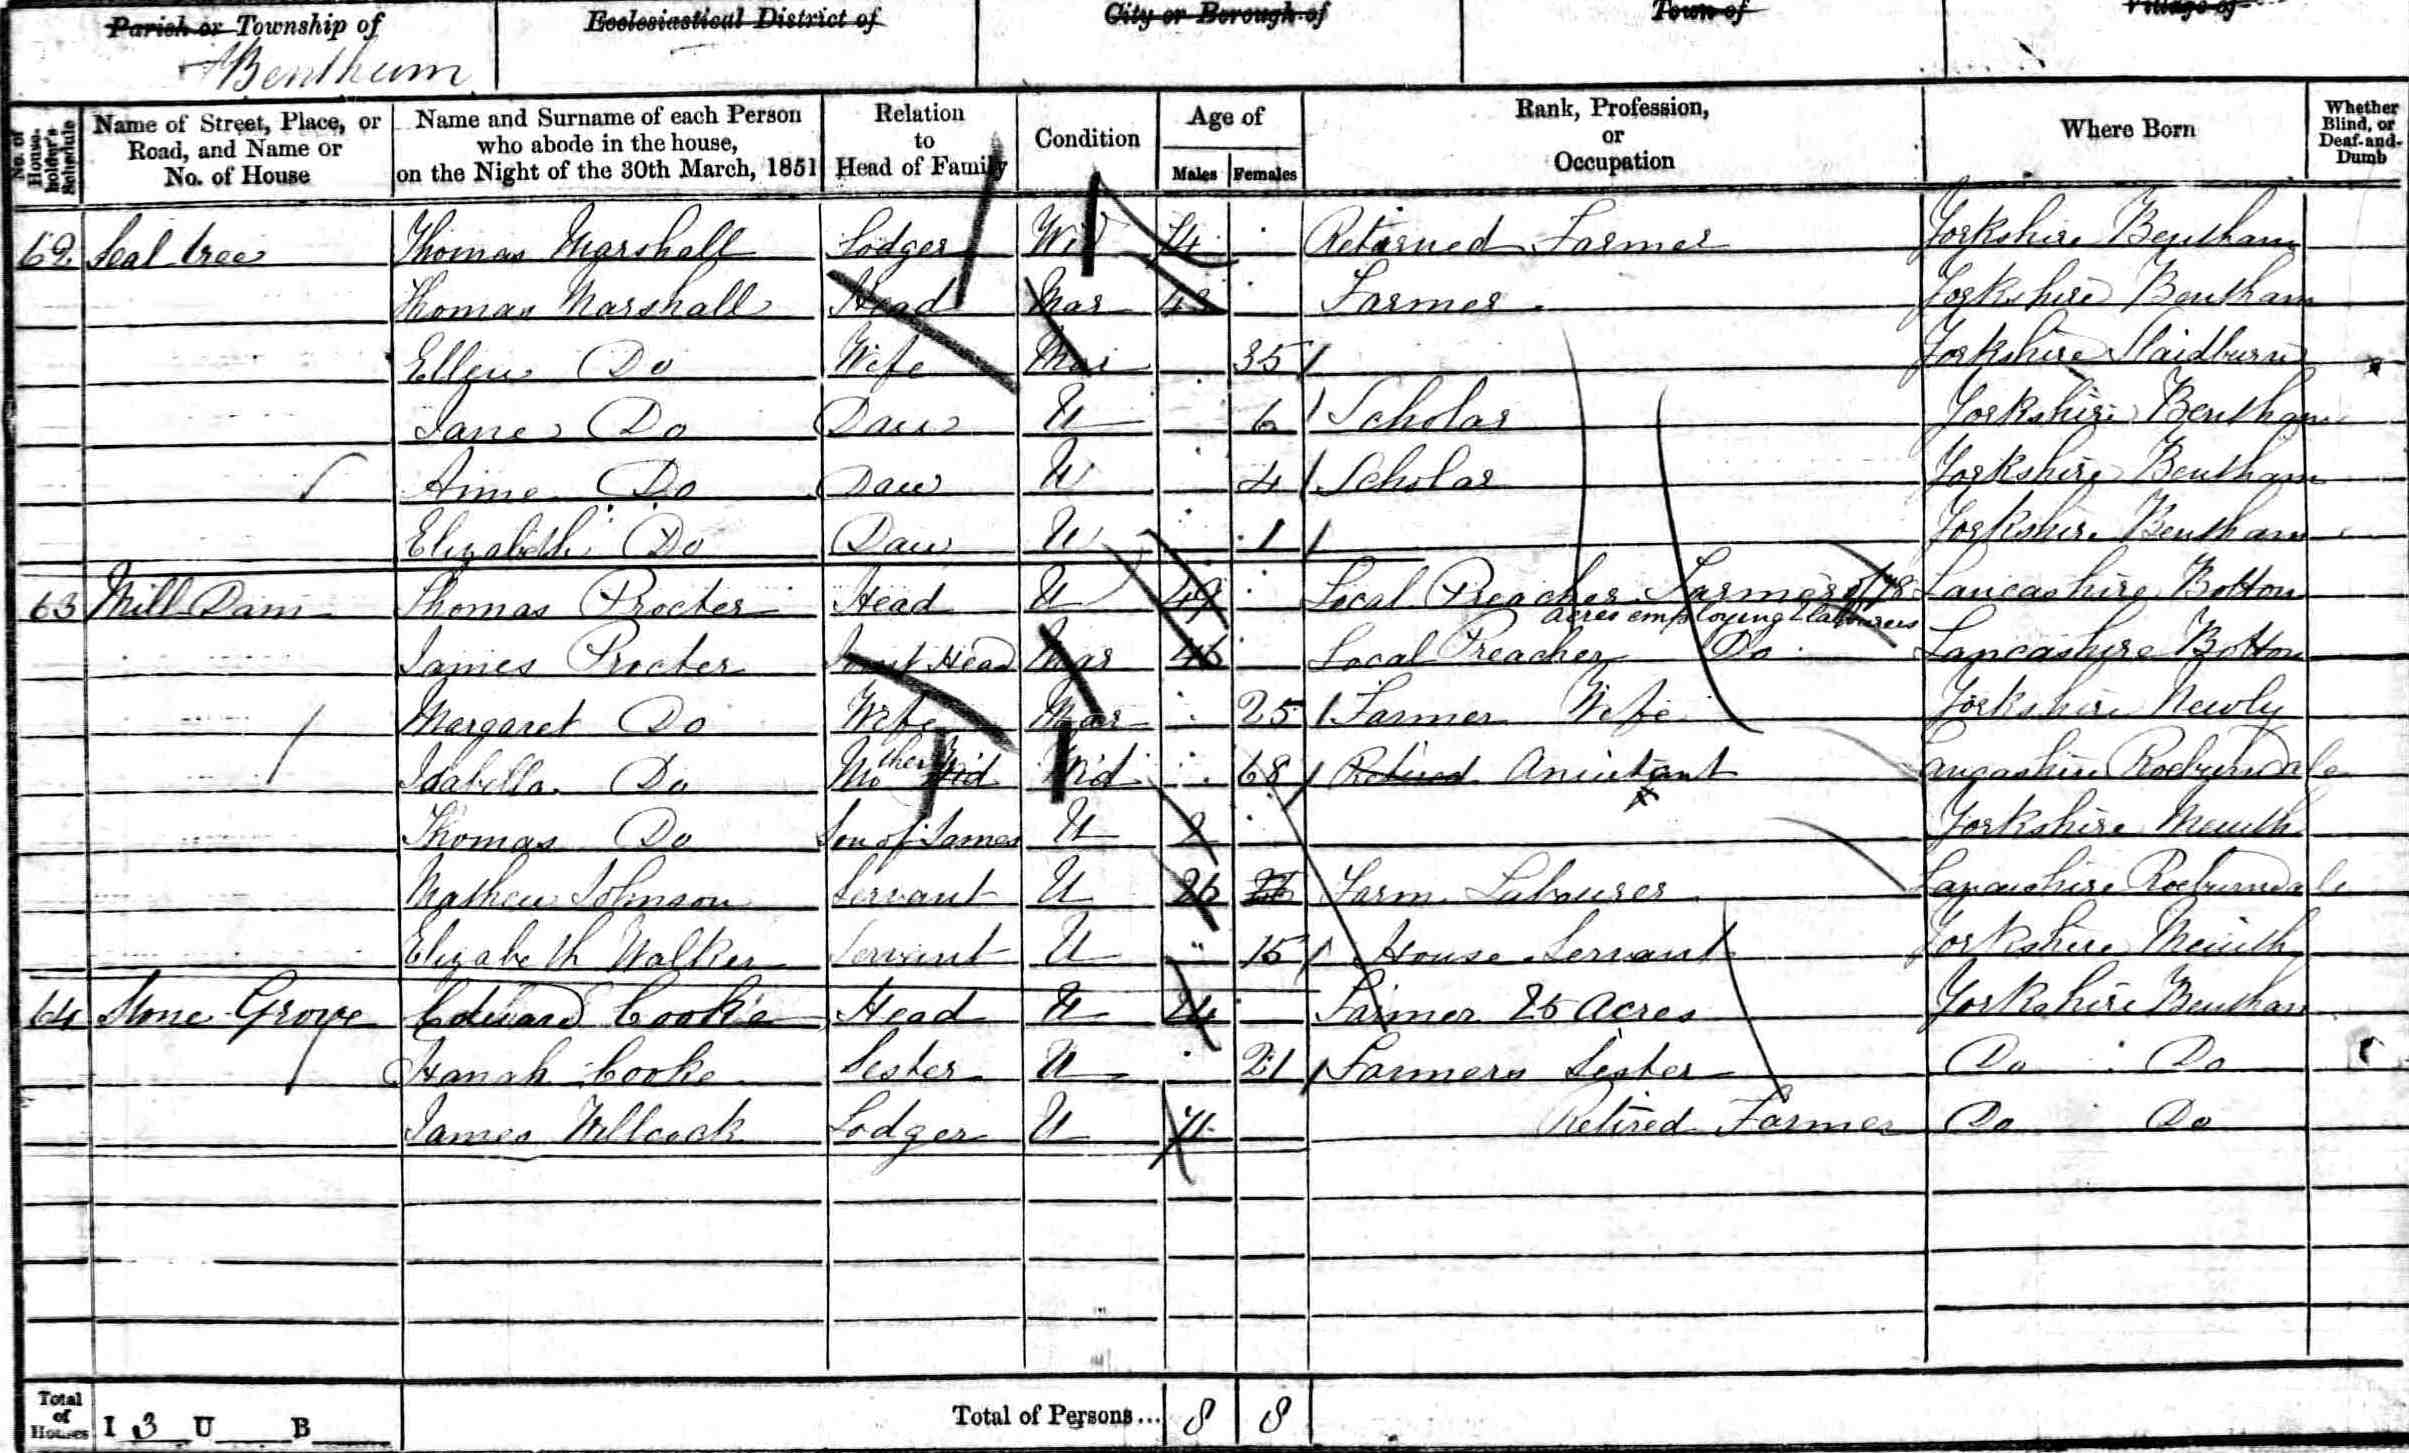 Parish or Township of Ecclesiastical District of City or Borough of Town of Village of
Bentham
No. of House-holder's Schedule
Name of Street, Place, or Road, and Name or No. of House
Name and Surname of each Person who abode in the house, on the Night of the 30th March, 1851
Relation to Head of Family
Condition
Age of
Males Females
Rank, Profession, or Occupation
Where Born
Whether Blind, or Deaf-and-Dumb
62 Seal tree Thomas Marshall Lodger Wid 74 Returned Farmer Yorkshire Bentham
Thomas Marshall Head Mar 43 Farmer Yorkshire Bentham
Ellen Do Wife Mar 35 Yorkshire Slaidburn
Jane Do Daur U 6 Scholar Yorkshire Bentham
Do Daur U 4 Scholar Yorkshire Bentham
Elizabeth Do Daur U 1 Yorkshire Bentham
63 Mill Dam Thomas Procter Head U 49 Local Preacher Farmer of 78 Lancashire Botton
acres employing 2 labourers
James Procter Joint Head Mar 46 Local Preacher Do Lancashire Botton
Margaret Do Wife Mar 25 Farmer Wife Yorkshire Newby
Isabella Do Mother Wid Wid 68 Retired Lancashire Roeburndale
Thomas Do Son of James U 2 Yorkshire
Mathew Johnson Servant U 26 26 Farm Labourer Lancashire Roeburndale
Elizabeth Walker Servant U " 15 House Servant Yorkshire
64 Stone Grove Edward Cooke Head U 24 Farmer 25 Acres Yorkshire Bentham
Hanah Cooke Sister U 21 Farmers Sister Do Do
James Willcock Lodger U 71 Retired Farmer Do Do
Total of Houses I 3 U B Total of Persons... 8 8